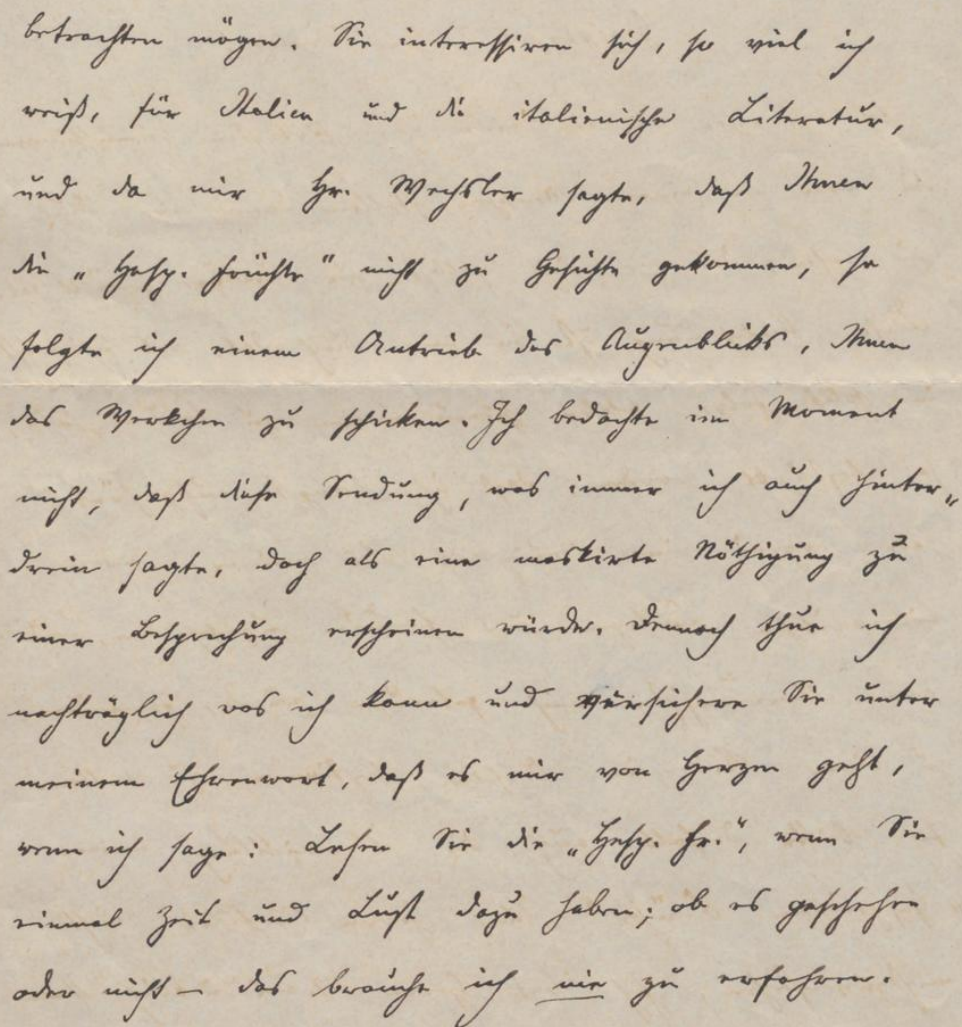 betrachten mögen. Sie interessiren sich, so viel ich
weiß, für Italien und die italienische Literatur,
und da mir Hr. Wechsler sagte, daß Ihnen
die „Hesp. Früchte" nicht zu Gesichte gekommen, so
folgte ich einem Antrieb des Augenblicks, Ihnen
das Werkchen zu schicken. Ich bedachte im Moment
nicht, daß diese Sendung, was immer ich auch hinter„
drein sagte, doch als eine maskirte Nöthigung zu
einer Besprechung erscheinen würde. Dennoch thue ich
nachträglich was ich kann und versichere Sie unter
meinem Ehrenwort, daß es mir von Herzen geht,
wenn ich sage: Lesen Sie die „Hesp. Fr.", wenn Sie
einmal Zeit und Lust dazu haben; ob es geschehen
oder nicht – das brauche ich nie zu erfahren.